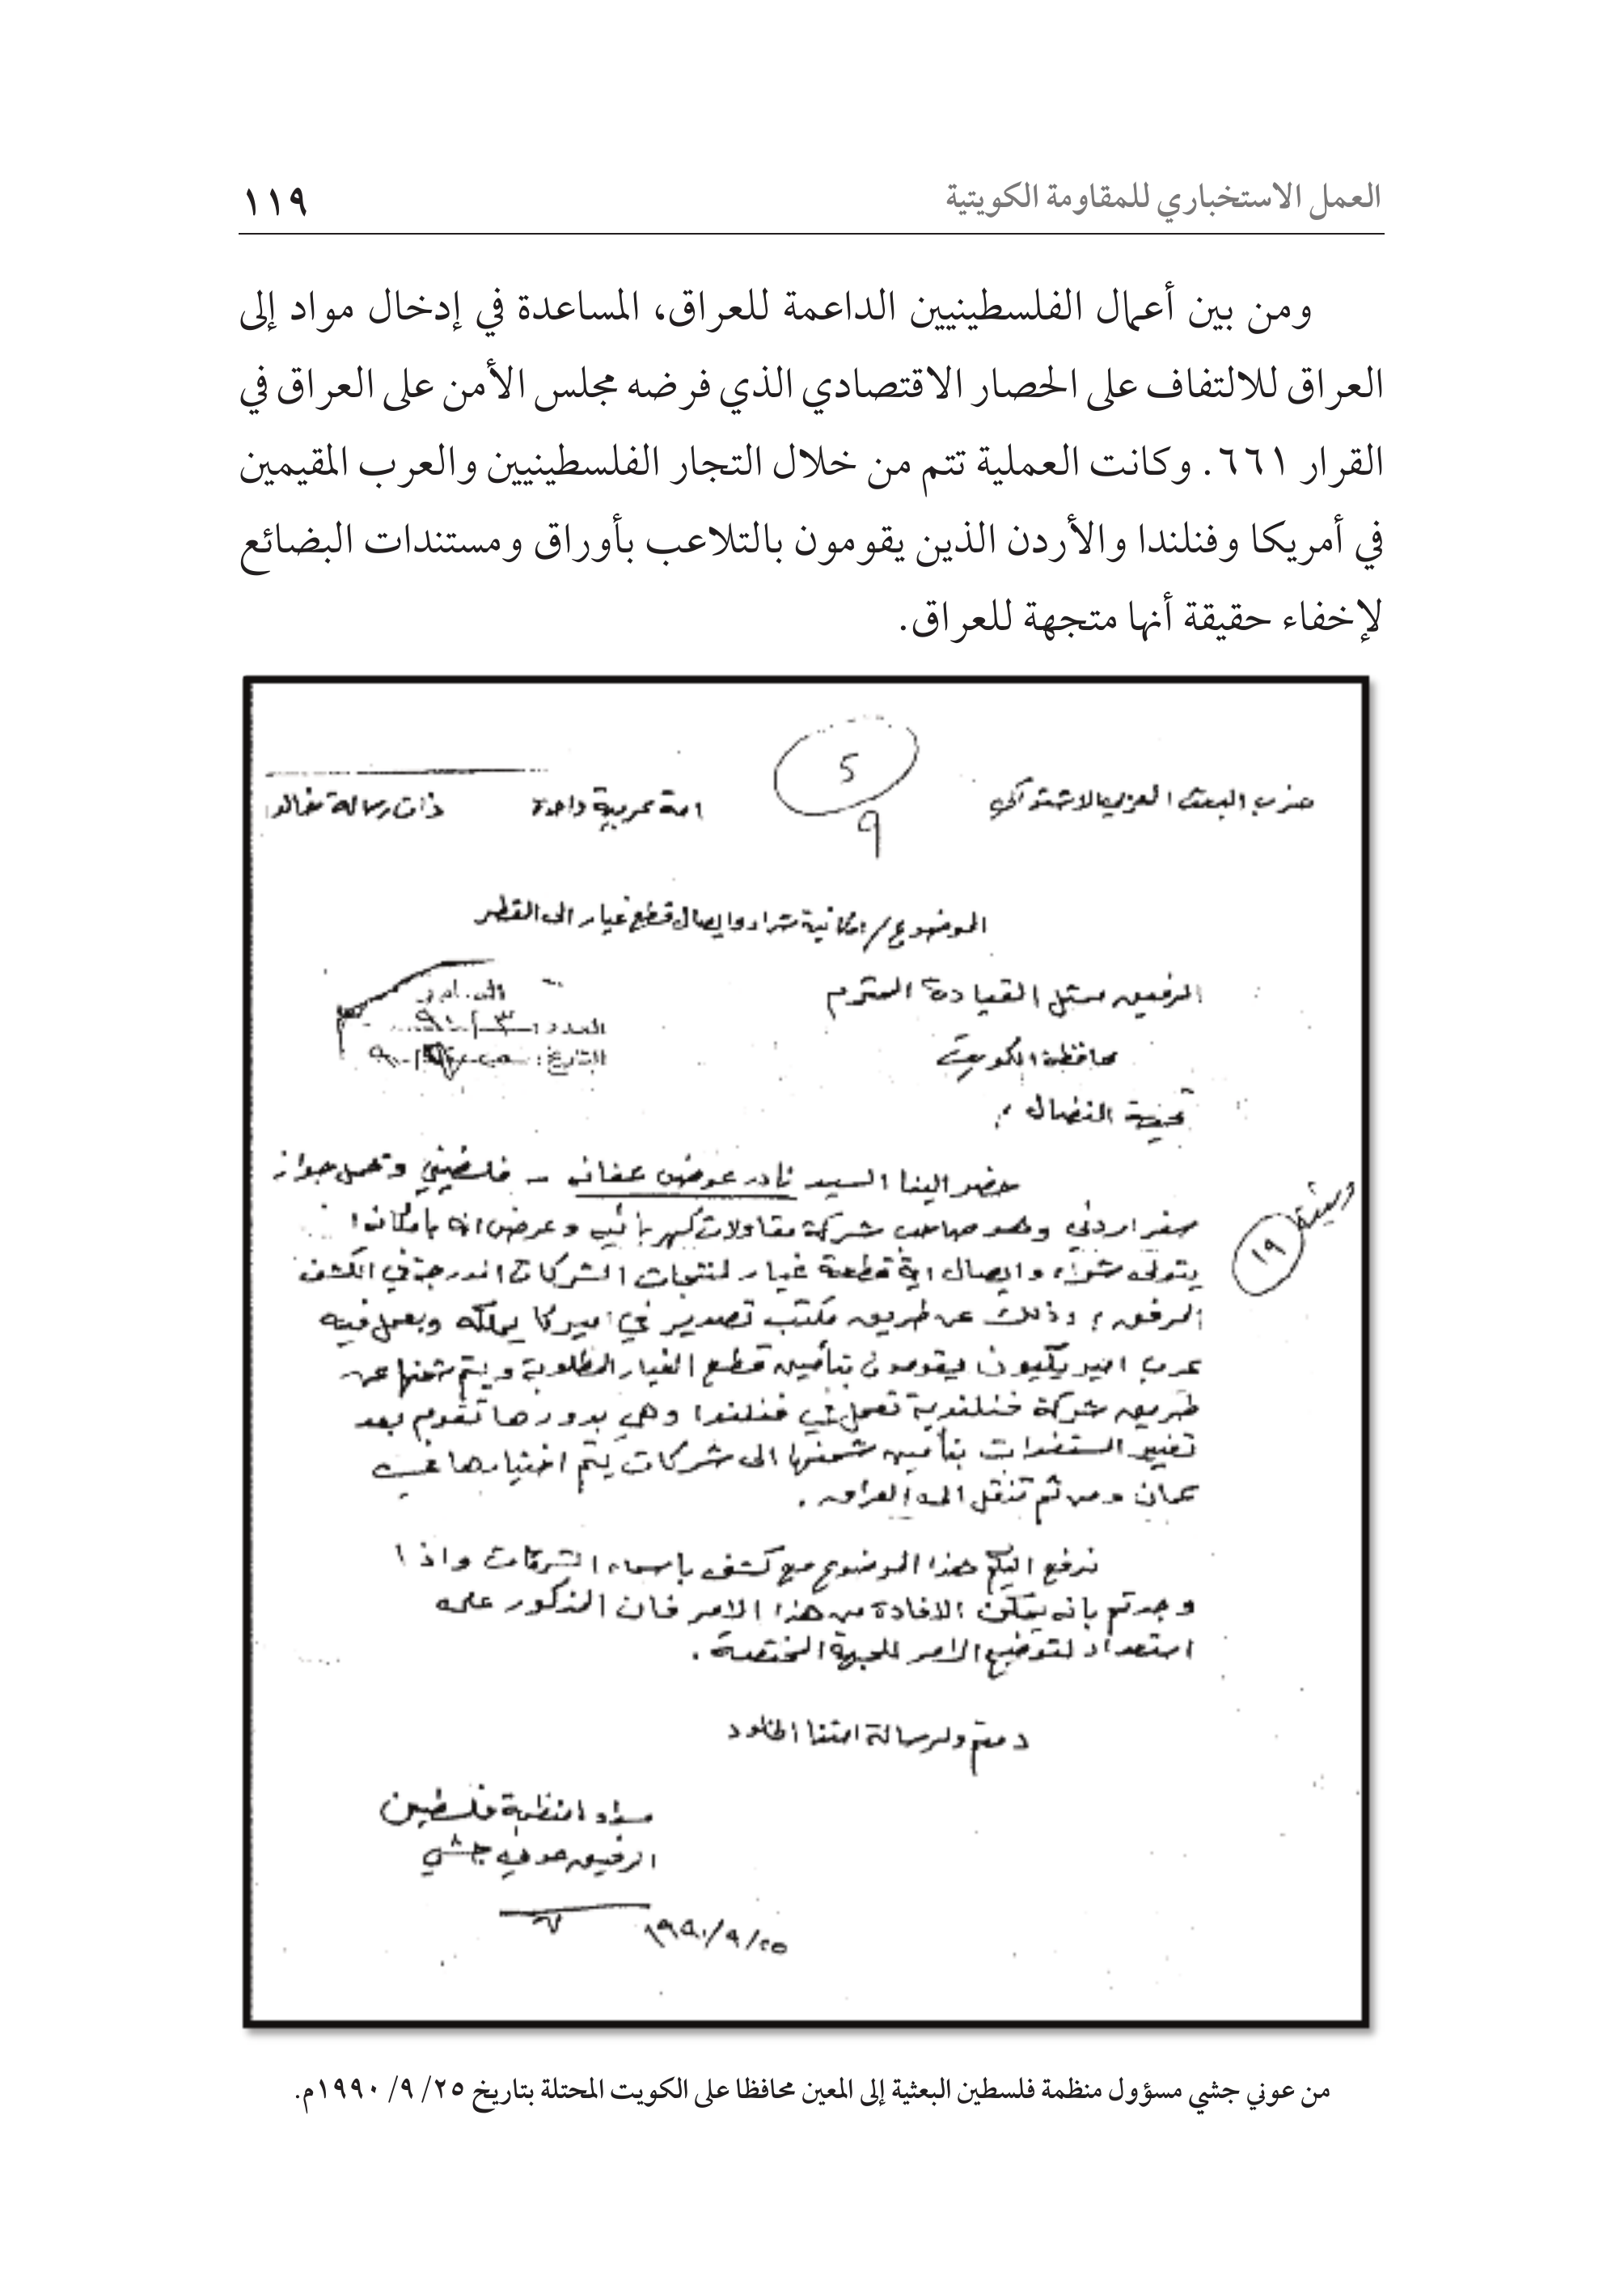 العمل الاستخباري للمقاومة الكويتية
١١٩
ومن بين أعمال الفلسطينيين الداعمة للعراق، المساعدة في إدخال مواد إلى
العراق للالتفاف على الحصار الاقتصادي الذي فرضه مجلس الأمن على العراق في
القرار ٦٦١. وكانت العملية تتم من خلال التجار الفلسطينيين والعرب المقيمين
في أمريكا وفنلندا والأردن الذين يقومون بالتلاعب بأوراق ومستندات البضائع
لإخفاء حقيقة أنها متجهة للعراق.
5
9
حزب البعث العربي الاشتراكي
امة عربية واحدة
ذات رسالة خالدة
الموضوع / امكانية شراء وايصال قطع غيار الى القطر
الرفيق ممثل القيادة المحترم
العدد:
التاريخ:
محافظة الكويت
تحية النضال ،
حضر الينا السيد نادر عوض عفانه - فلسطيني وتحمل جواز
سفر اردني وهو صاحب شركة مقاولات كهربائية وعرض انه بامكانه
يتولى شراء وايصال اية قطعة غيار لمنتجات الشركات المدرجة في الكشف
المرفق ، وذلك عن طريق مكتب تصدير في اميركا يملكه ويعمل فيه
عرب اميريكيون ليقومون بتأمين قطع الغيار المطلوبة ويتم شحنها عن
طريق شركة فنلندية تعمل في فنلندا وهي بدورها تقوم بعد
تغيير المستندات بتأمين شحنها الى شركات يتم اختيارها في
عمان ومن ثم تنقل الى العراق .
وثيقة
١٩
نرفع اليكم هذا الموضوع مع كشف باسماء الشركات واذا
وجدتم بانه يمكن الافادة من هذا الامر فان المذكور على
استعداد لتوضيح الامر للجهة المختصة .
دمتم ولرسالة امتنا الخلود
منظمة فلسطين
الرفيق عوني جشي
١٩٩٠/٩/٢٥
من عوني جشي مسؤول منظمة فلسطين البعثية إلى المعين محافظا على الكويت المحتلة بتاريخ ٢٥/ ٩/ ١٩٩٠م.